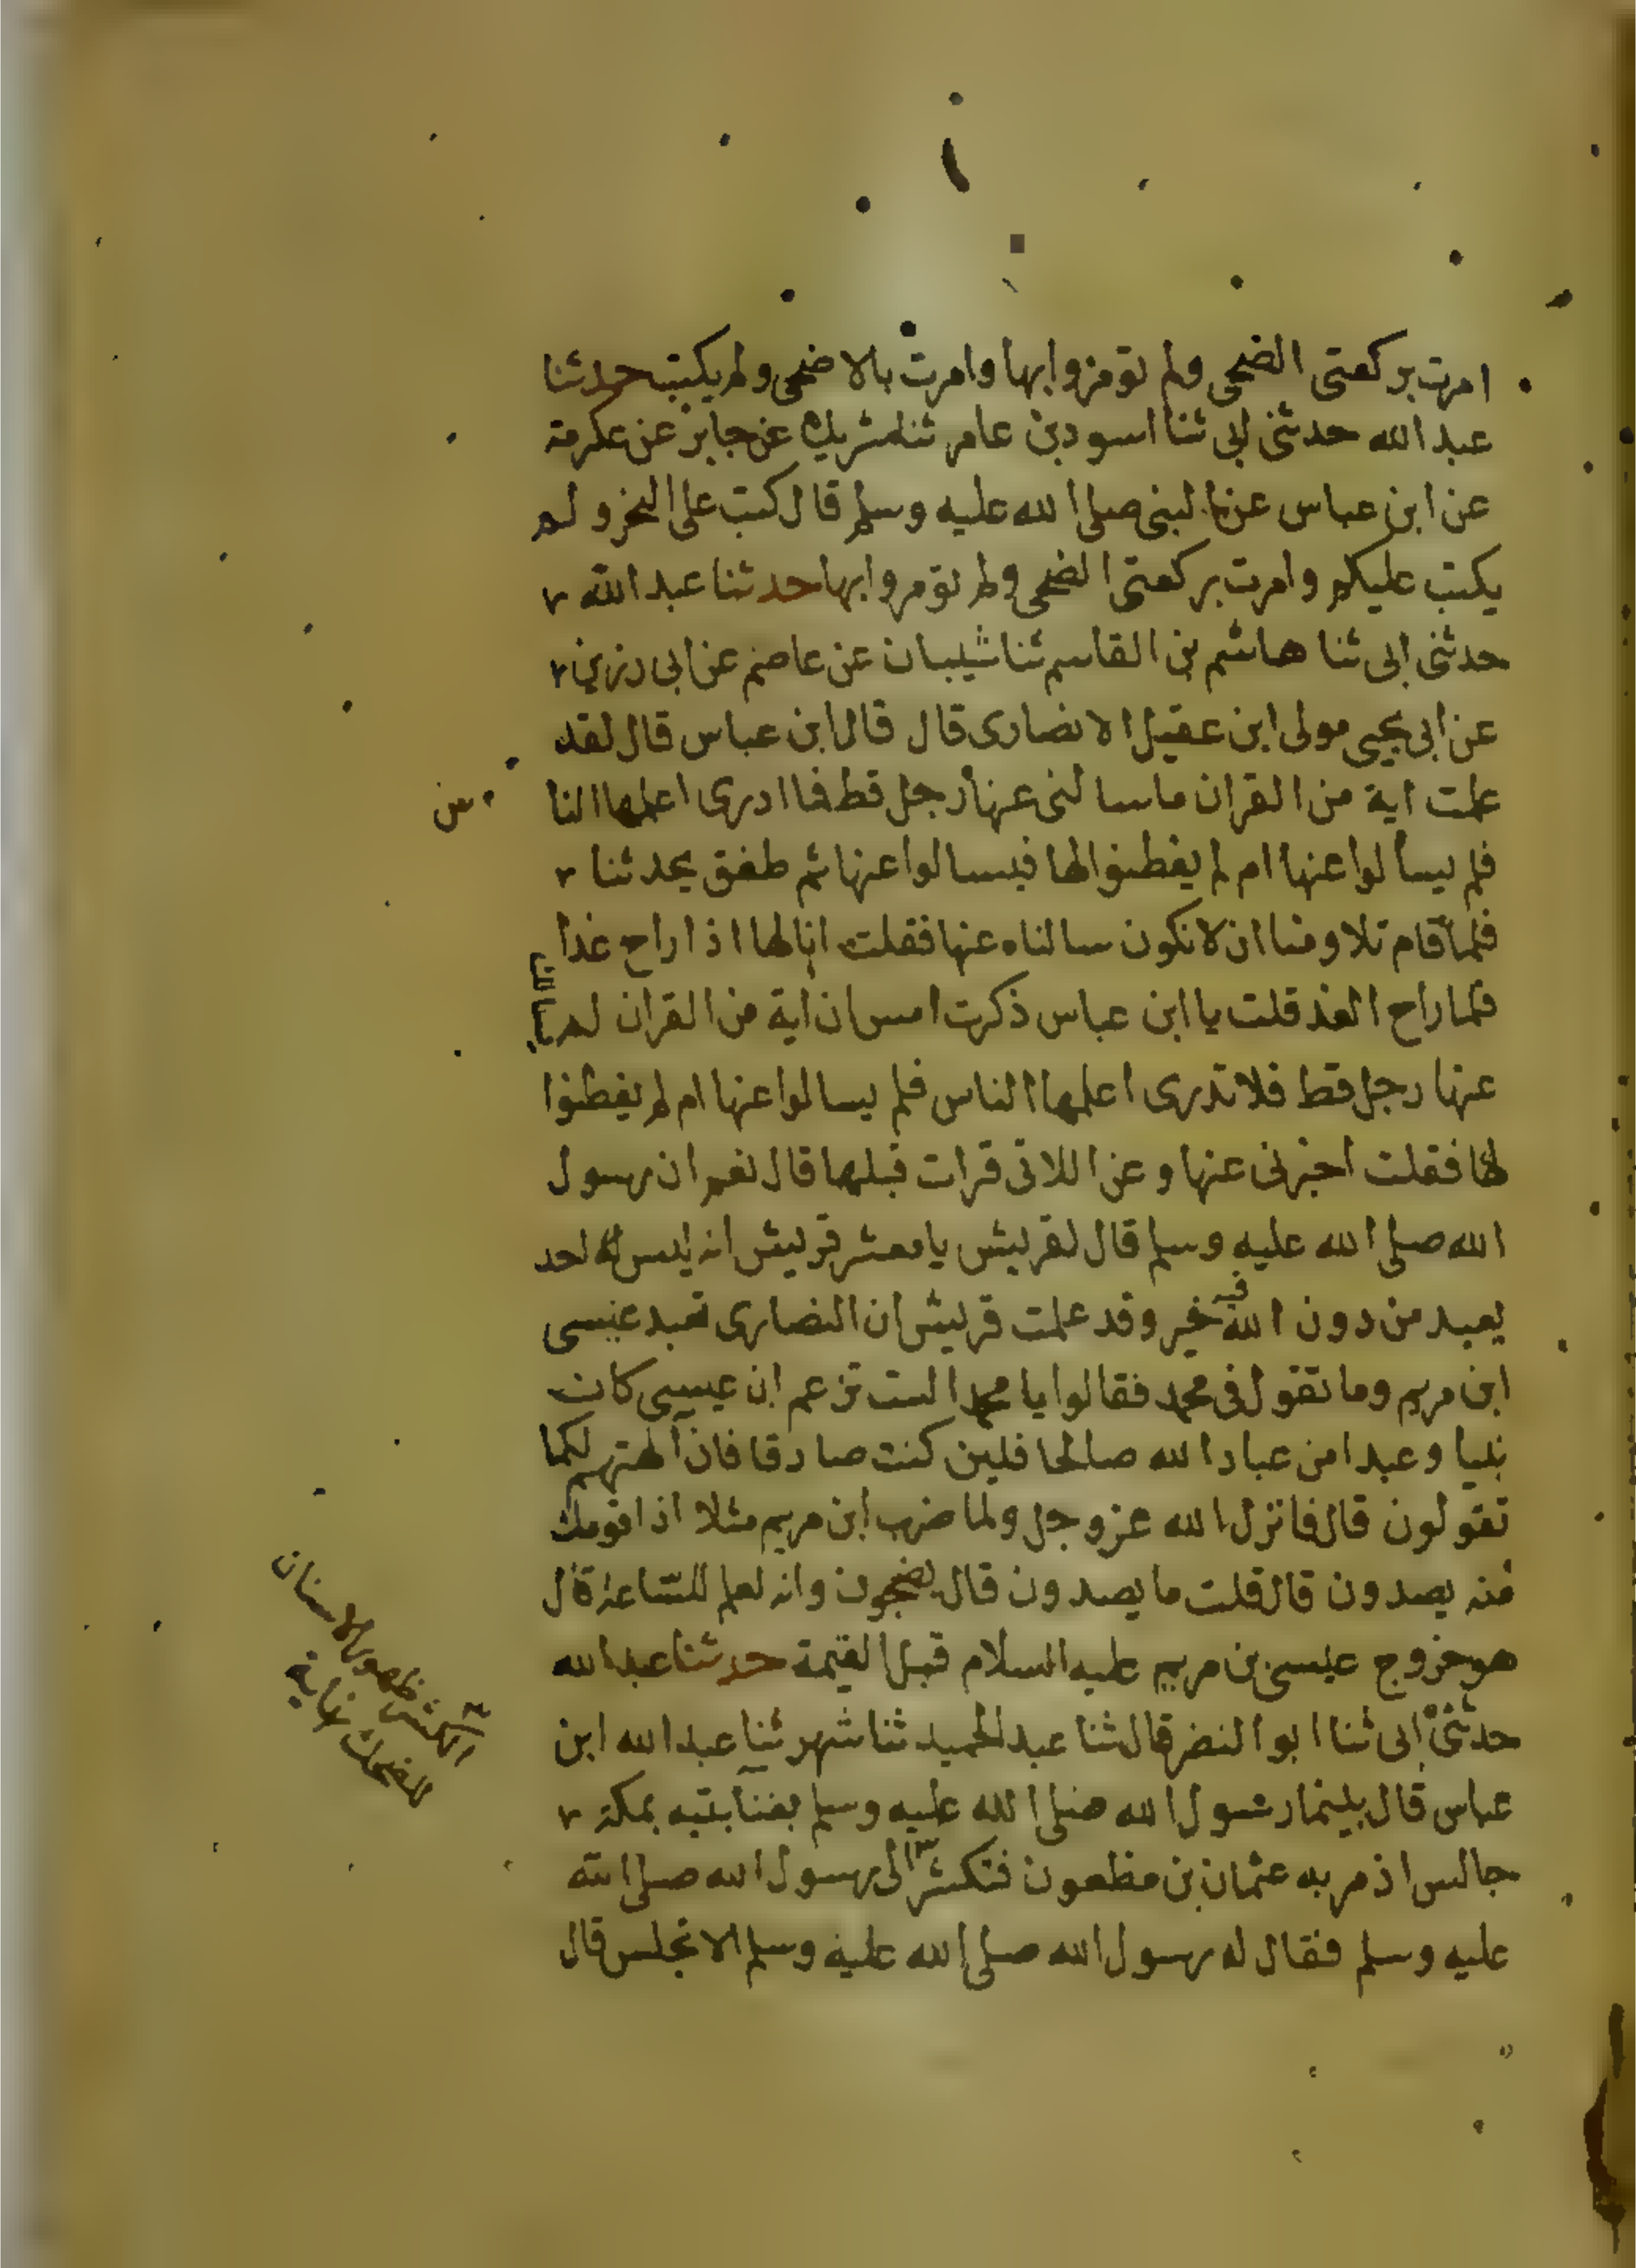 امرت بركعتى الضحى ولم تومروا بها وامرت بالاضحى ولم يكتب حدثنا
عبد الله حدثنى ابى ثنا اسود بن عامر ثنا شريك عن جابر عن عكرمة
عن ابن عباس عن النبى صلى الله عليه وسلم قال كتب على النحر ولم
يكتب عليكم وامرت بركعتى الضحى ولم تومروا بها حدثنا عبد الله
حدثنى ابى ثنا هاشم بن القاسم ثنا شيبان عن عاصم عن ابى رزين
عن ابى يحيى مولى ابن عقيل الانصارى قال قال ابن عباس قال لقد
علمت اية من القران ما سالنى عنها رجل قط فما ادرى اعلمها النا
س
فلم يسألوا عنها ام لم يفطنوا لها فيسالوا عنها ثم طفق يحدثنا
فلما قام تلاومنا ان لا نكون سالناه عنها فقلت انا لها اذا راح غدا
فلما راح الغد قلت يا ابن عباس ذكرت امس ان اية من القران لم يسالك
عنها رجل قط فلا تدرى اعلمها الناس فلم يسالوا عنها ام لم يفطنوا
لها فقلت اخبرنى عنها وعن اللاتى قرات قبلها قال نعم ان رسول
الله صلى الله عليه وسلم قال لقريش يا معشر قريش انه ليس احد
يعبد من دون الله فيه خير وقد علمت قريش ان النصارى تعبد عيسى
ابن مريم وما تقول فى محمد فقالوا يا محمد الست تزعم ان عيسى كان
نبيا وعبدا من عباد الله صالحا فلين كنت صادقا فان آلهتهم لكما
تقولون قال فانزل الله عز وجل ولما ضرب ابن مريم مثلا اذا قومك
منه يصدون قال قلت ما يصدون قال يضجون وانه لعلم للساعة قال
هو خروج عيسى بن مريم عليه السلام قبل القيمة حدثنا عبد الله
حدثنى ابى ثنا ابو النضر قال ثنا عبد الحميد ثنا شهر ثنا عبد الله ابن
عباس قال بينما رسول الله صلى الله عليه وسلم بفنا بيته بمكة
جالس اذ مر به عثمان بن مظعون فتكشر الى رسول الله صلى الله
عليه وسلم فقال له رسول الله صلى الله عليه وسلم الا تجلس قال
الكشر ظهور الاسنان
للضحك غاية